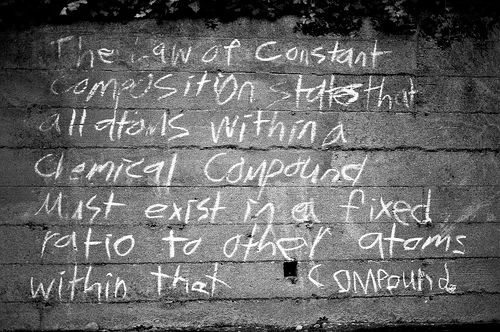 The Law of Constant
Composition states that
all atoms within a
Chemical Compound
Must exist in a fixed
ratio to other atoms
within that Compound.